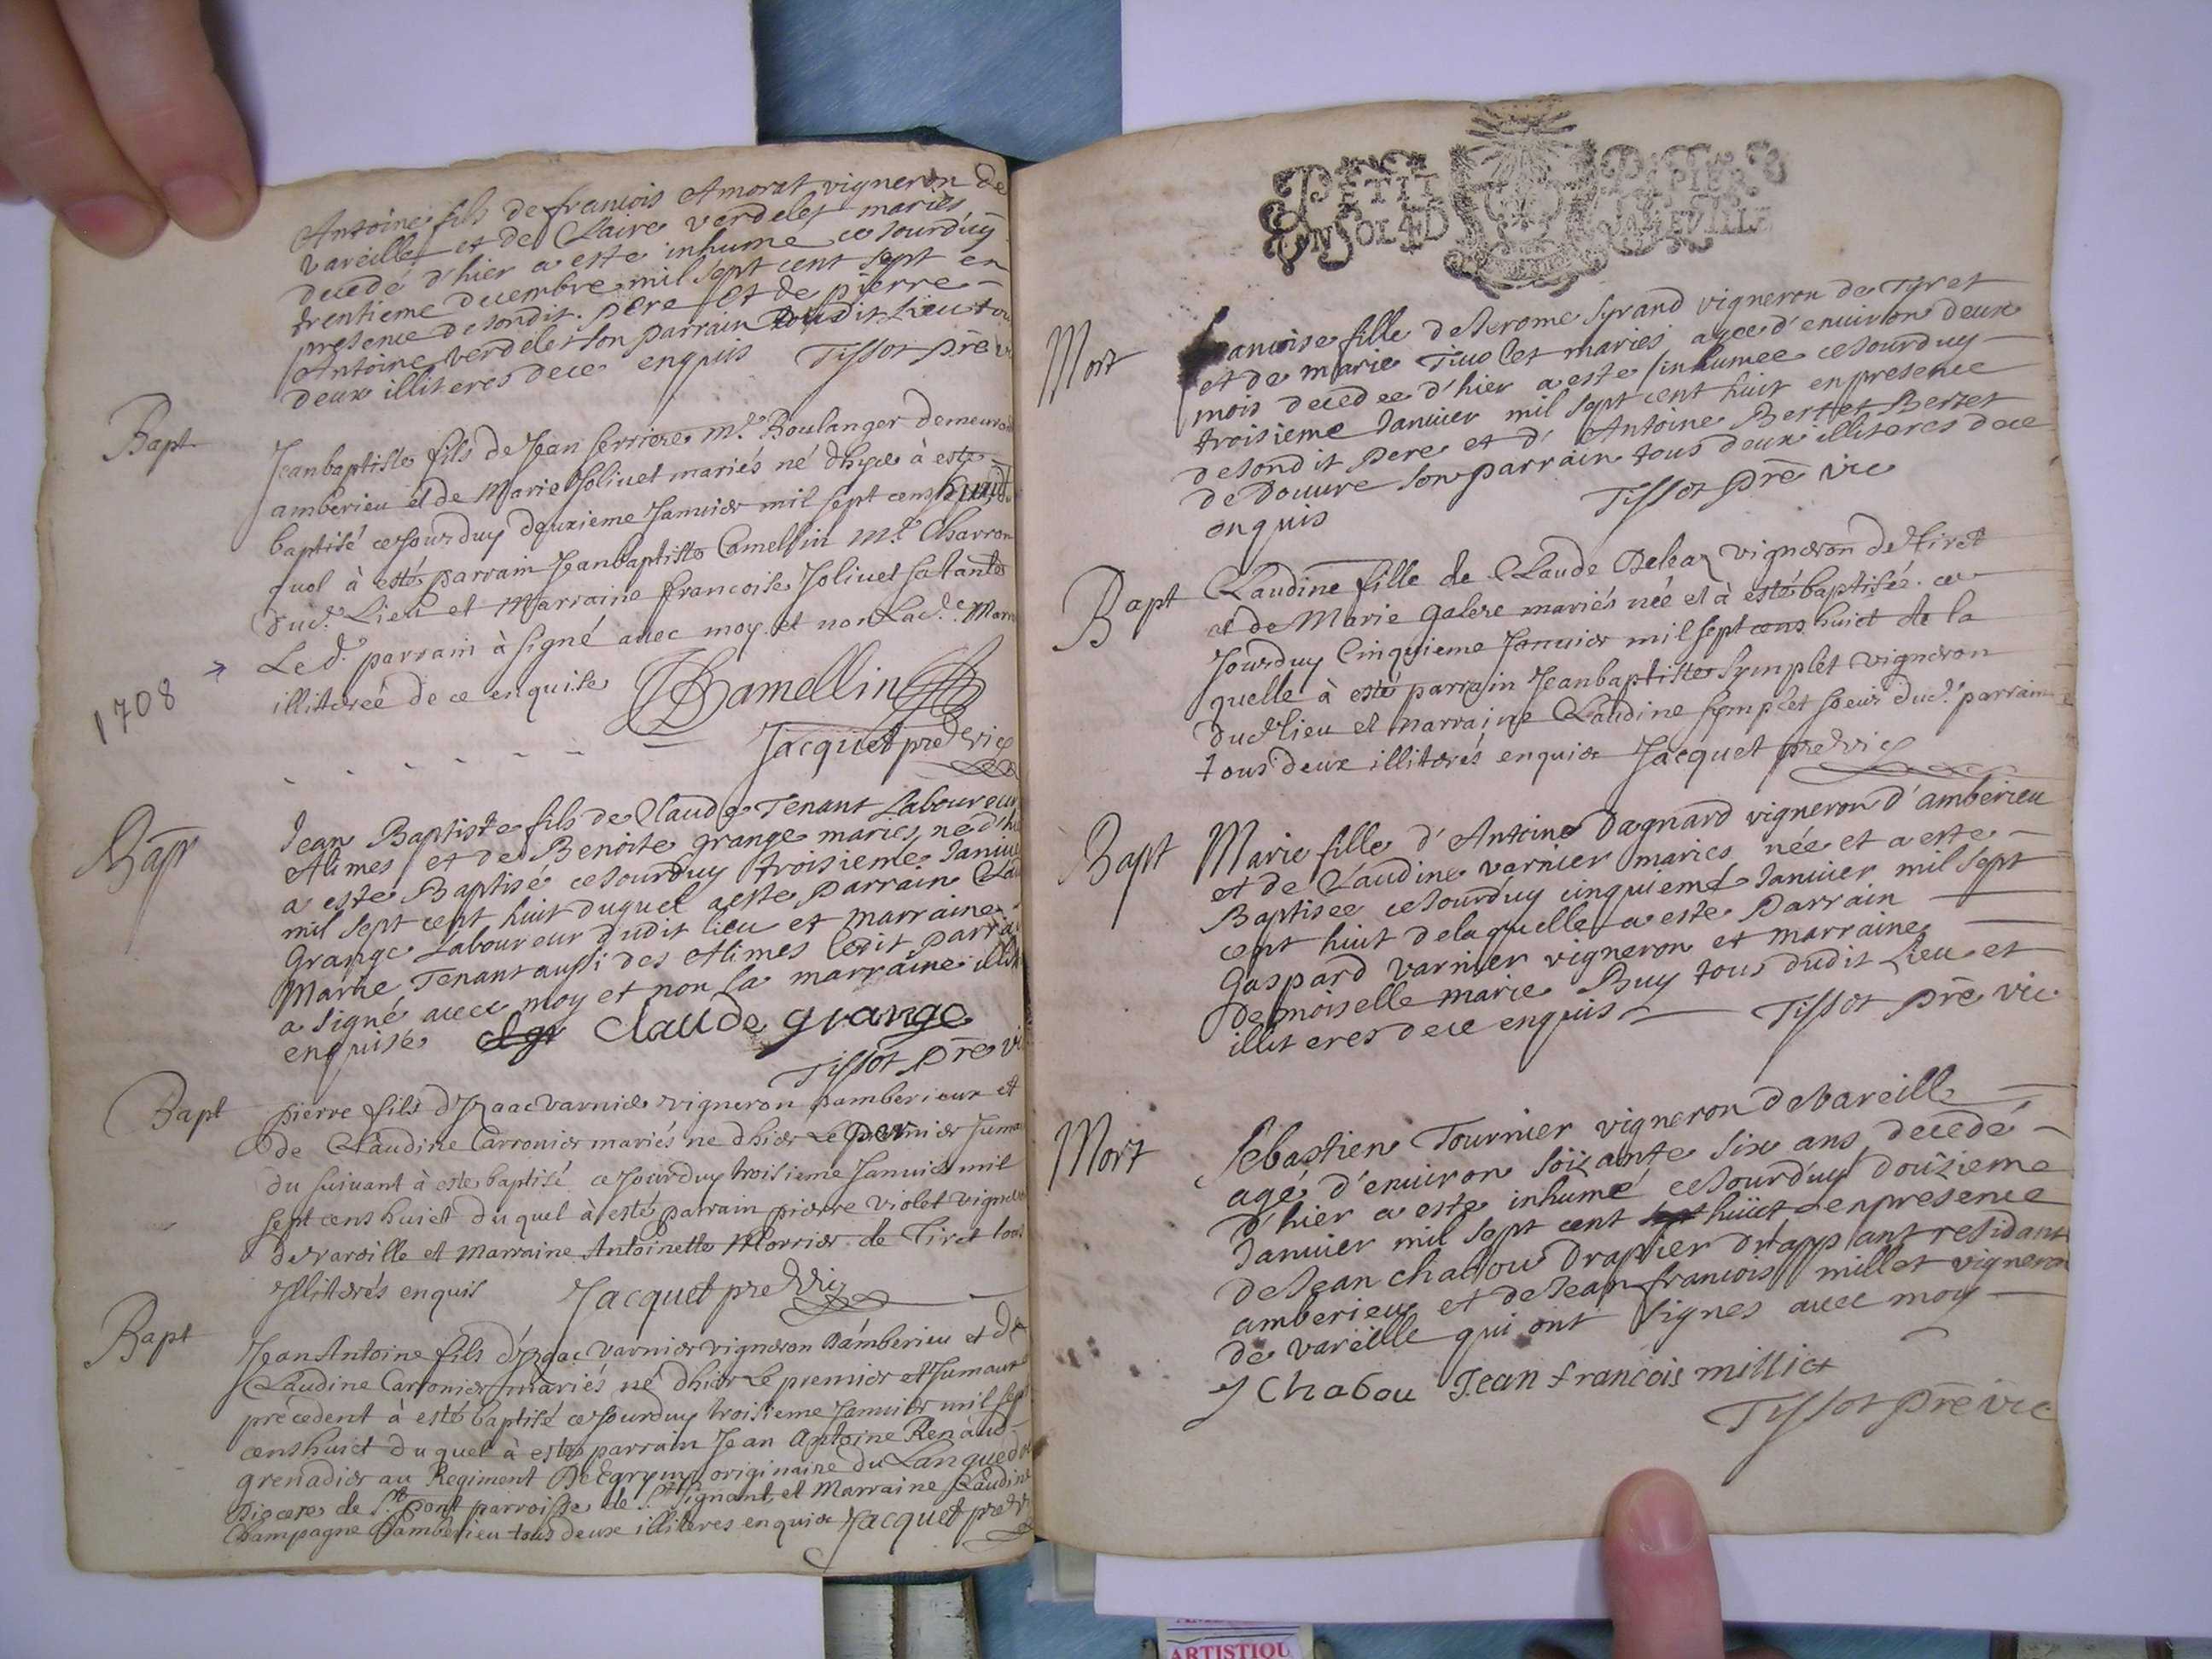 Antoine fils de francois Amorat vigneron de
vareille et de Claire verdelet mariés
decedé d'hier a este inhumé ce Jourduy
trentieme decembre mil sept cent sept en
presence de sondit pere et de pierre
Antoine verdelet son parrain dudit Lieu tou
deux illiteres de ce enquis Tissot pre vi
Bapt
Jeanbaptiste fils de Jean ferriere m.e Boulanger demeura
amberieu et de Marie Joliuet mariés né dhyer à esté
baptisé ce Jourduy deuxieme Januier mil sept cens huict
quel à esté parrain Jeanbaptiste Camellin m.e Charron
dud. Lieu et Marraine francoise Joliuet
Le d. parrain à signé auec moy et non Lad.e Marr
illiterée de ce enquise JBCamellin
1708
Jacquet pre Vic
Bapt
Jean Baptiste fils de Claude Tenant Laboureur
Alimes et de Benoite grange mariés, né d'hi
a este Baptisé ce Jourduy troisieme Januie
mil sept cent huit duquel a este parrain Cla
Grange Laboureur dudit lieu et marraine
Marie Tenant aussi des Alimes Ledit parra
a signé auec moy et non la marraine illit
enquisé Claude grange
Tissot pre vi
Bapt
pierre fils d'Izaac varnier vigneron damberieux et
de Claudine Carronier mariés ne dhier Le dernier Juma
du suivant à este baptisé ce Jourduy troisieme Januier mil
sept cens huict du quel à esté parrain pierre violet vigner
de vareille et Marraine Antoinette Morrier de Tiret tous
Jlliterés enquis Jacquet pre Vic
Bapt
Jean Antoine fils d'Izaac varnier vigneron damberieu et de
Claudine Carronier mariés né dhier Le premier et Jumaut
precedent à esté baptisé ce Jourduy troisieme Januier mil sept
cens huict du quel à esté parrain Jean Antoine Renaud
grenadier au Regiment originaire du Languedo
Diocese de S.t pont parroisse de S.t Signant et Marraine Claudine
Champagne damberieu tous deux illiteres enquis Jacquet pre V
PETIT PAPIER
UN SOL 4 D LA FEVILLE
Mort
francoise fille de Jerome Syrand vigneron de Tyret
et de marie Tiuolet mariés agee d'enuiron deux
mois decedee d'hier a este inhumee ce Jourduy
troisieme Januier mil sept cent huit en presence
de sondit pere et d' Antoine Bertet Bertet
de Douure son parrain tous deux illiteres de ce
enquis Tissot pre vic
Bapt
Claudine fille de Claude Deleaz vigneron de Tiret
et de Marie galere mariés née et à esté baptisée ce
Jourduy Cinquieme Januier mil sept cens huict de la
quelle à esté parrain Jeanbaptiste Symplet vigneron
dud lieu et marraine Claudine symplet soeur dud. parrain
tous deux illiterés enquis Jacquet pre vic
Bapt
Marie fille d'Antoine Dagnard vigneron d'amberieu
et de Claudine varnier mariés née et a este
Baptisee ce Jourduy cinquieme Januier mil sept
cent huit de laquelle a este parrain
Gaspard varnier vigneron et marraine
demoiselle marie Buy tous dudit Lieu et
illiteres de ce enquis Tissot pre vic
Mort
Sebastien Tournier vigneron de Vareille
agé d'enuiron soizante six ans decedé
d'hier a este inhumé ce Jourduy douzieme
Januier mil sept cent huict en presence
de Jean chabou drapier drappant residant
amberieu et de Jean francois millet vigneron
de vareille qui ont signes auec moy
J Chabou Jean francois milliet
Tissot pre vic
ARTISTIQU